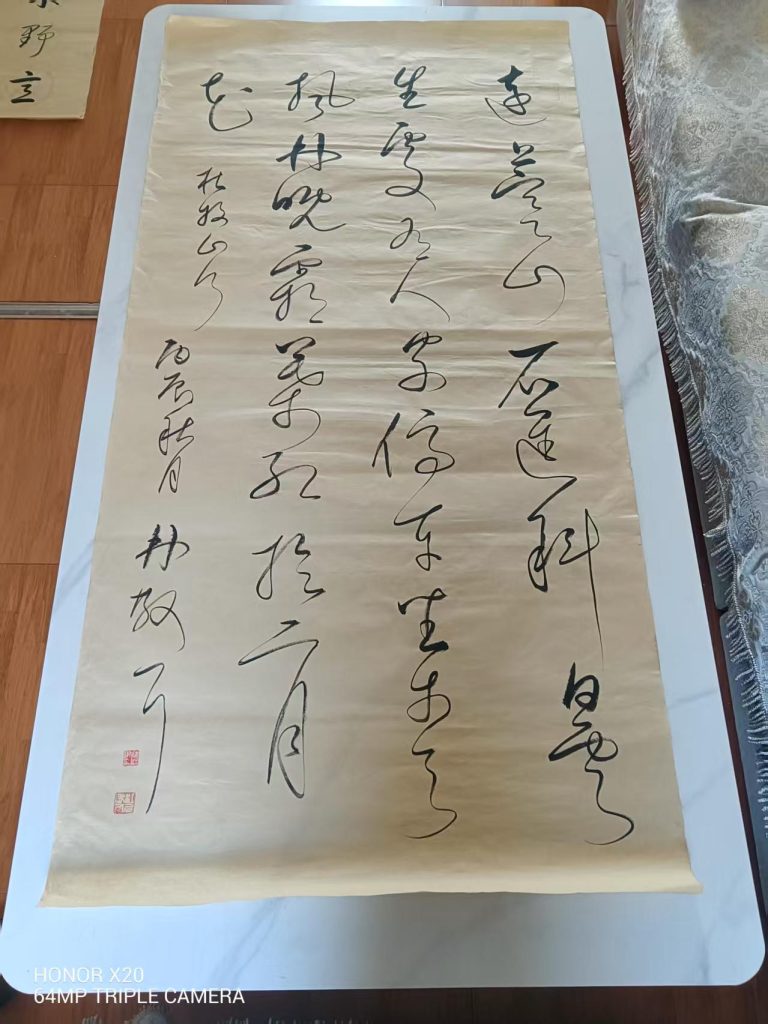 遠上寒山石逕斜白雲
生處有人家停車坐愛
楓林晚霜葉紅於二月
花
杜牧山行
丙辰秋月
林散耳
野立
HONOR X20
64MP TRIPLE CAMERA